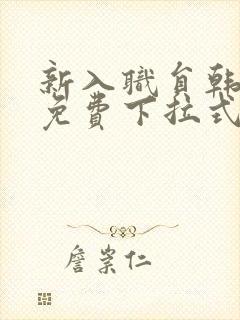 新入職員韩
免費下拉式
詹崇仁